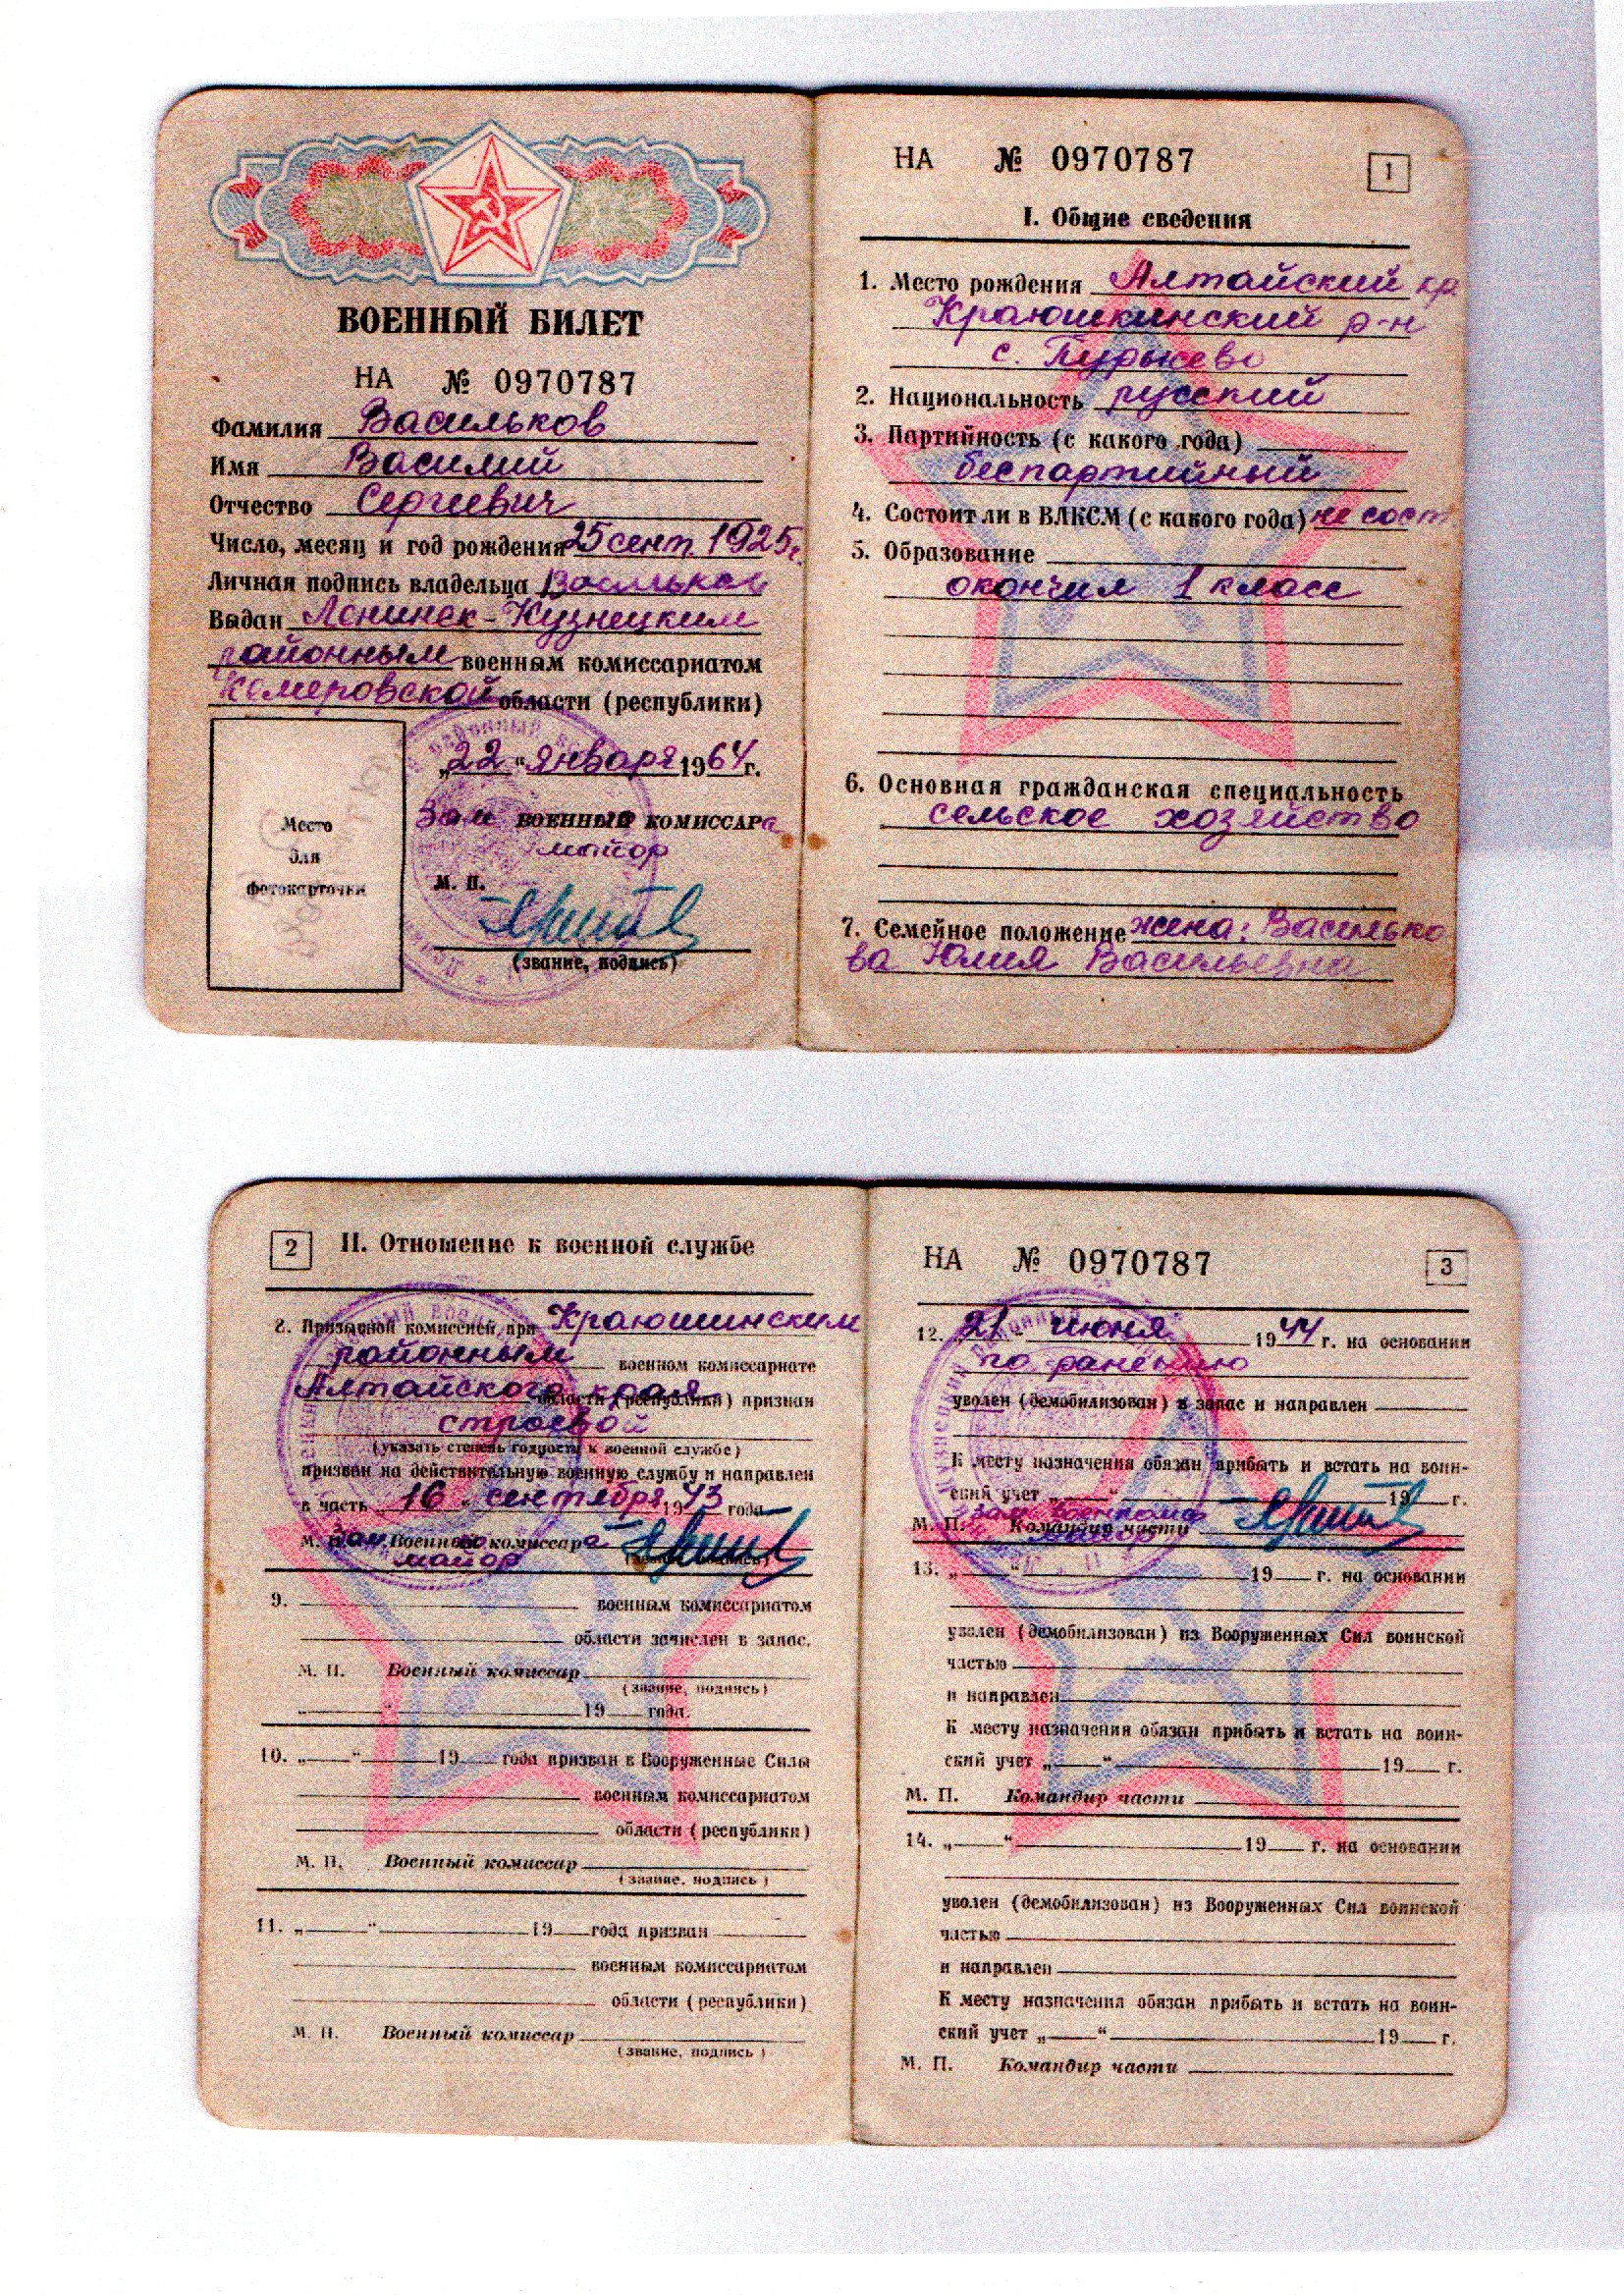 ВОЕННЫЙ БИЛЕТ
НА № 0970787
Фамилия Васильков
Имя Василий
Отчество Сергеевич
Число, месяц и год рождения 25 сент. 1925г.
Личная подпись владельца Васильков
Выдан Ленинск-Кузнецким
районным военным комиссариатом
Кемеровской области (республики)
„22“ января 1964г.
Зам военный комиссара
майор
Место
для
фотокарточки
М. П.
(звание, подпись)
НА № 0970787
1
I. Общие сведения
1. Место рождения Алтайский кр
Краюшкинский р-н
с.
2. Национальность русский
3. Партийность (с какого года)
беспартийный
4. Состоит ли в ВЛКСМ (с какого года) не сост
5. Образование
окончил 1 класс
6. Основная гражданская специальность
сельское хозяйство
7. Семейное положение жена: Василько
ва Юлия Васильевна
2
II. Отношение к военной службе
8. Призывной комиссией при Краюшинским
районным военном комиссариате
Алтайского края области (республики) признан
строевой
(указать степень годности к военной службе)
призван на действительную военную службу и направлен
в часть „16“ сентября 1943 года
М. П. Зам. Военного комиссара
майор
(звание, подпись)
9. военным комиссариатом
области зачислен в запас.
М. П. Военный комиссар
(звание, подпись)
„ “ 19 года.
10. „ “ 19 года призван в Вооруженные Силы
военным комиссариатом
области (республики)
М. П. Военный комиссар
(звание, подпись)
11. „ “ 19 года призван
военным комиссариатом
области (республики)
М. П. Военный комиссар
(звание, подпись)
НА № 0970787
3
12. „21“ июня 1944 г. на основании
по ранению
уволен (демобилизован) в запас и направлен
К месту назначения обязан прибыть и встать на воин-
ский учет „ “ 19 г.
зам. военкома
М. П. Командир части
майор
13. „ “ 19 г. на основании
уволен (демобилизован) из Вооруженных Сил воинской
частью
и направлен
К месту назначения обязан прибыть и встать на воин-
ский учет „ “ 19 г.
М. П. Командир части
14. „ “ 19 г. на основании
уволен (демобилизован) из Вооруженных Сил воинской
частью
и направлен
К месту назначения обязан прибыть и встать на воин-
ский учет „ “ 19 г.
М. П. Командир части